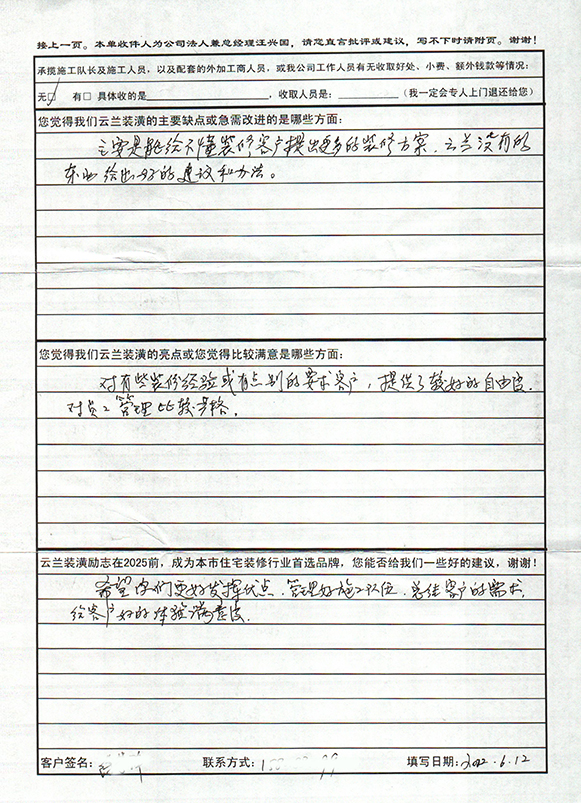 接上一页。本单收件人为公司法人兼总经理汪兴国，请您直言批评或建议，写不下时请附页。谢谢！
承揽施工队长及施工人员，以及配套的外加工商人员，或我公司工作人员有无收取好处、小费、额外钱款等情况：
无□ 有□ 具体收的是 ，收取人员是： （我一定会专人上门退还给您）
您觉得我们云兰装潢的主要缺点或急需改进的是哪些方面：
主要是能给不懂装修客户提出更多的装修方案，云兰没有的
东西给出好的建议和办法。
您觉得我们云兰装潢的亮点或您觉得比较满意是哪些方面：
对有些装修经验或有点别的要求客户，提供了较好的自由度.
对员工管理比较严格.
云兰装潢励志在2025前，成为本市住宅装修行业首选品牌，您能否给我们一些好的建议，谢谢！
希望你们更好发挥优点、管理好施工队伍、总结客户的需求，
给客户好的体验满意度.
客户签名： 联系方式： 填写日期：2022.6.12